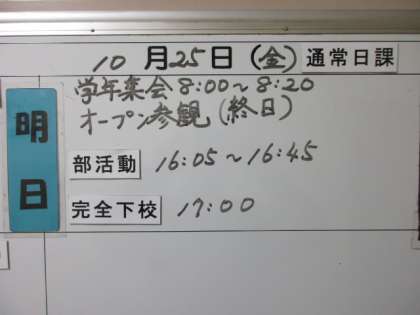 10月25日(金)通常日課
明日
学年集会 8:00~8:20
オープン参観(終日)
部活動 16:05~16:45
完全下校 17:00